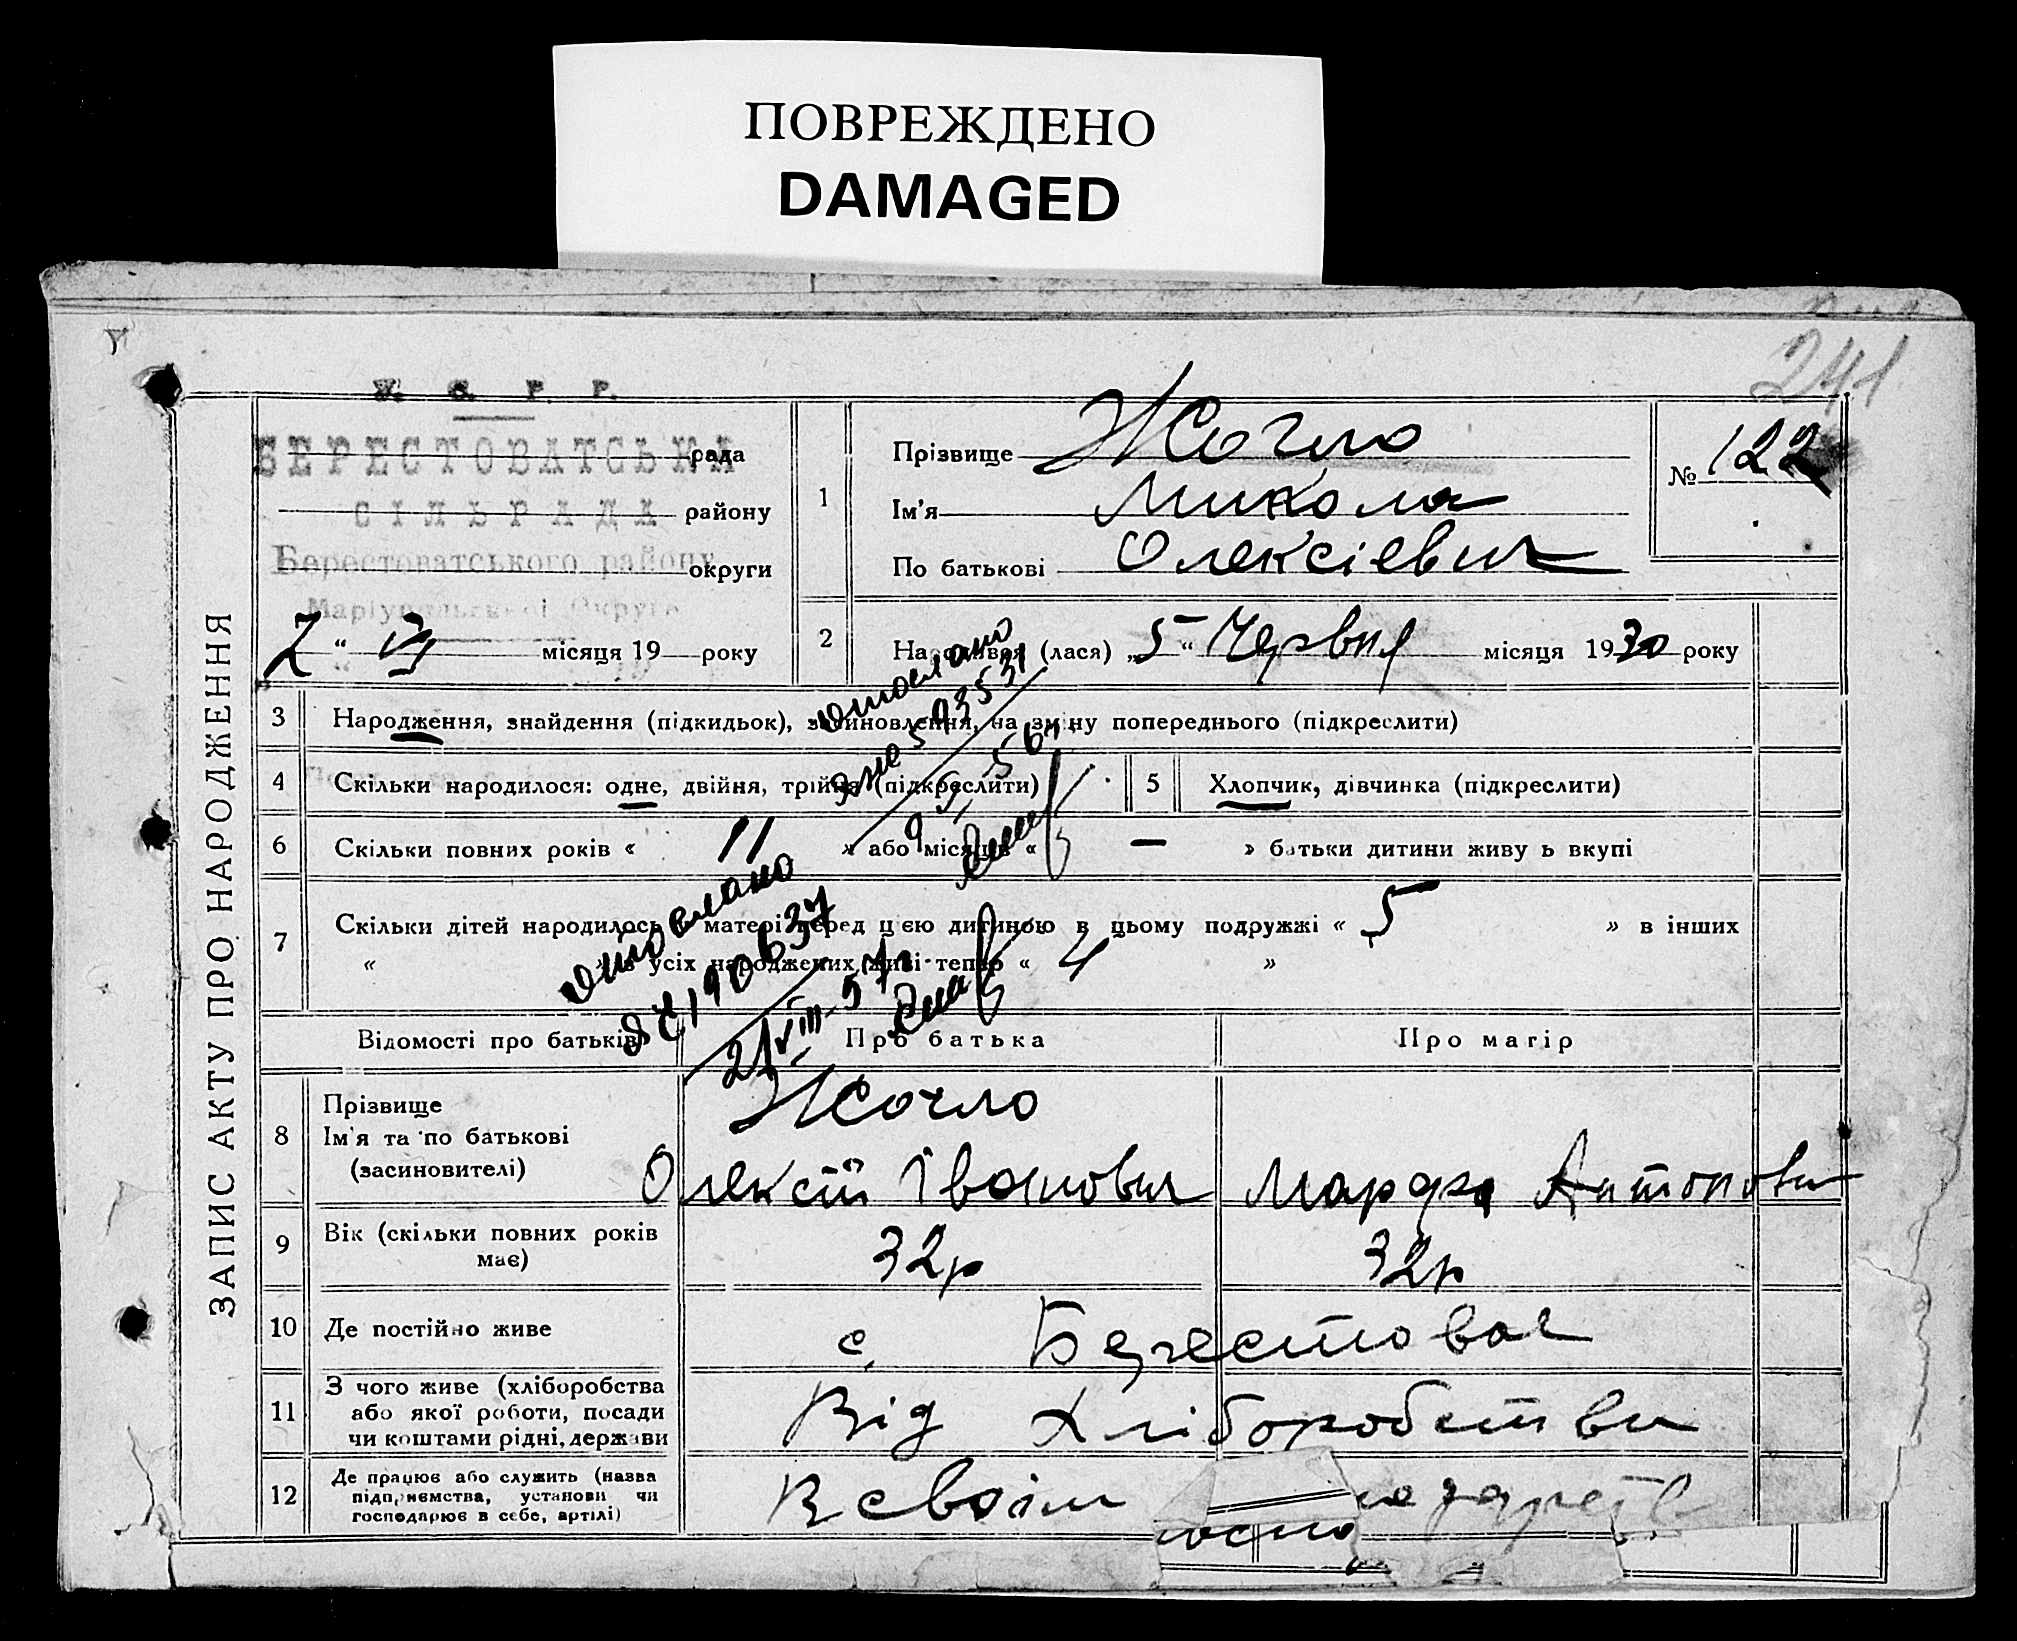 ПОВРЕЖДЕНО
DAMAGED
241
У. С. Р. Р.
БЕРЕСТОВАТСЬКА рада
СІЛЬРАДА району
Берестоватського району округи
Маріупольської Округи
місяця 19 року
ЗАПИС АКТУ ПРО НАРОДЖЕННЯ
1 Прізвище Жогло
Ім'я Микола
По батькові Олексієвич
№ 122
2 Народився (лася) „5“ Червня місяця 1930 року
3 Народження, знайдення (підкидьок), засиновлення, на зміну попереднього (підкреслити)
4 Скільки народилося: одне, двійня, трійня (підкреслити)
5 Хлопчик, дівчинка (підкреслити)
6 Скільки повних років « 11 » або місяців « — » батьки дитини живуть вкупі
7 Скільки дітей народилось у матері перед цією дитиною в цьому подружжі « 5 » в інших
« » з усіх народжених живі тепер « 4 »
отослано
отослано
21/VIII-57
Відомості про батьків
Про батька
Про матір
8 Прізвище
Ім'я та по батькові
(засиновителі)
Жогло
Олексій Іванович
Марфа Антонови
9 Вік (скільки повних років
має)
32р
32р
10 Де постійно живе
с. Берестовая
11 З чого живе (хліборобства
або якої роботи, посади
чи коштами рідні, держави
Від Хліборобства
12 Де працює або служить (назва
підприємства, установи чи
господарює в себе, артілі)
В своїм